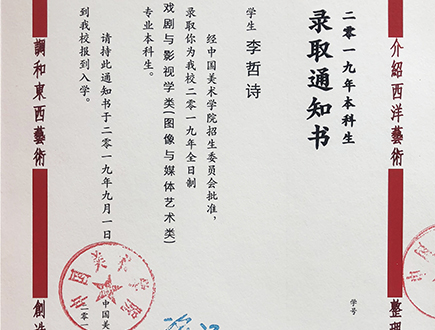 介紹西洋藝術
整理
二零一九年本科生
录取通知书
学号
学生 李哲诗
经中国美术学院招生委员会批准，
录取你为我校二零一九年全日制
戏剧与影视学类(图像与媒体艺术类)
专业本科生。
请持此通知书于二零一九年九月一日
到我校报到入学。
中国美术
二零一
中国美术学院
調和東西藝術
創造